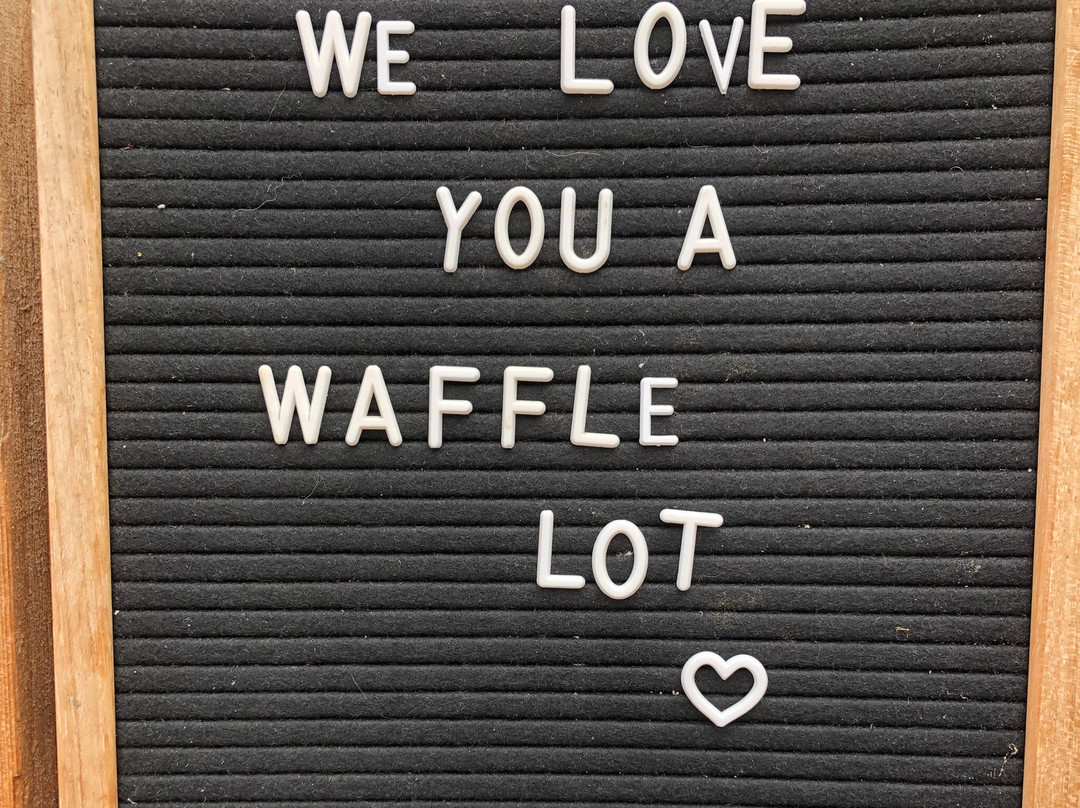 WE LOVE
YOU A
WAFFLE
LOT